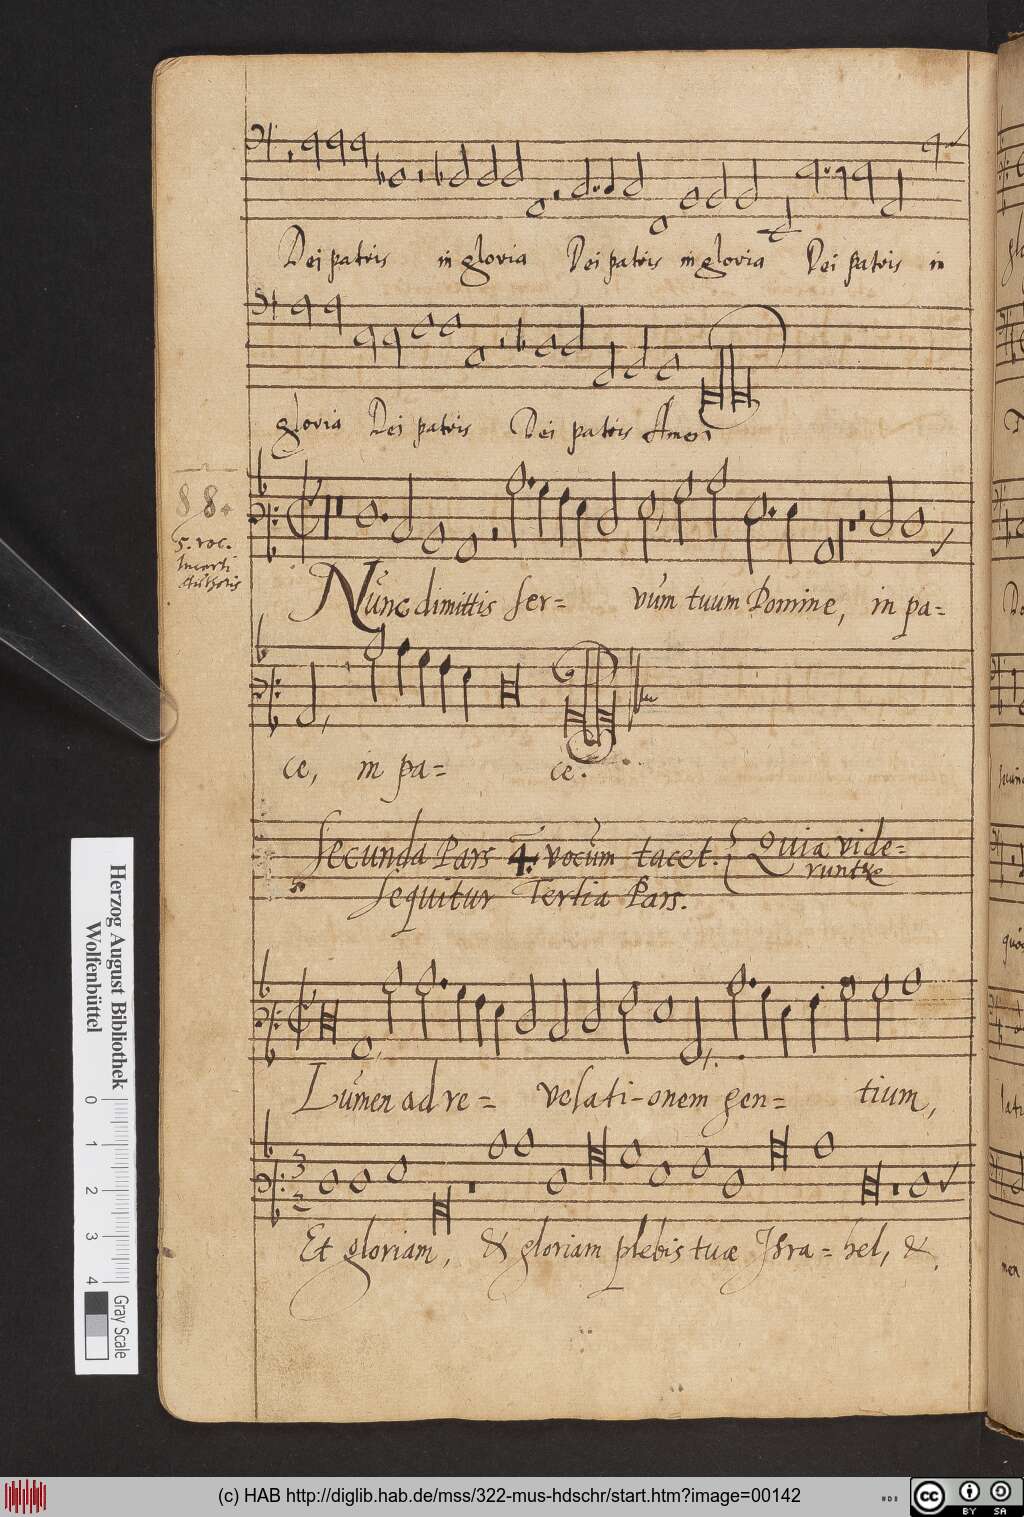 Dei patris in gloria Dei patris in gloria Dei patris in
gloria Dei patris Dei patris Amen
88.
5. voc.
Incerti
Authoris
Nunc dimittis ser= vum tuum Domine, in pa=
ce, in pa= ce.
Secunda Pars 4. vocum tacet. Quia vide=
runt &c
Sequitur Tertia Pars.
Lumen ad re= velati-onem gen= tium,
Et gloriam, & gloriam plebis tuæ Jsra=hel, &.
Herzog August Bibliothek
Wolfenbüttel
0 1 2 3 4
Gray Scale
(c) HAB http://diglib.hab.de/mss/322-mus-hdschr/start.htm?image=00142
cc BY SA